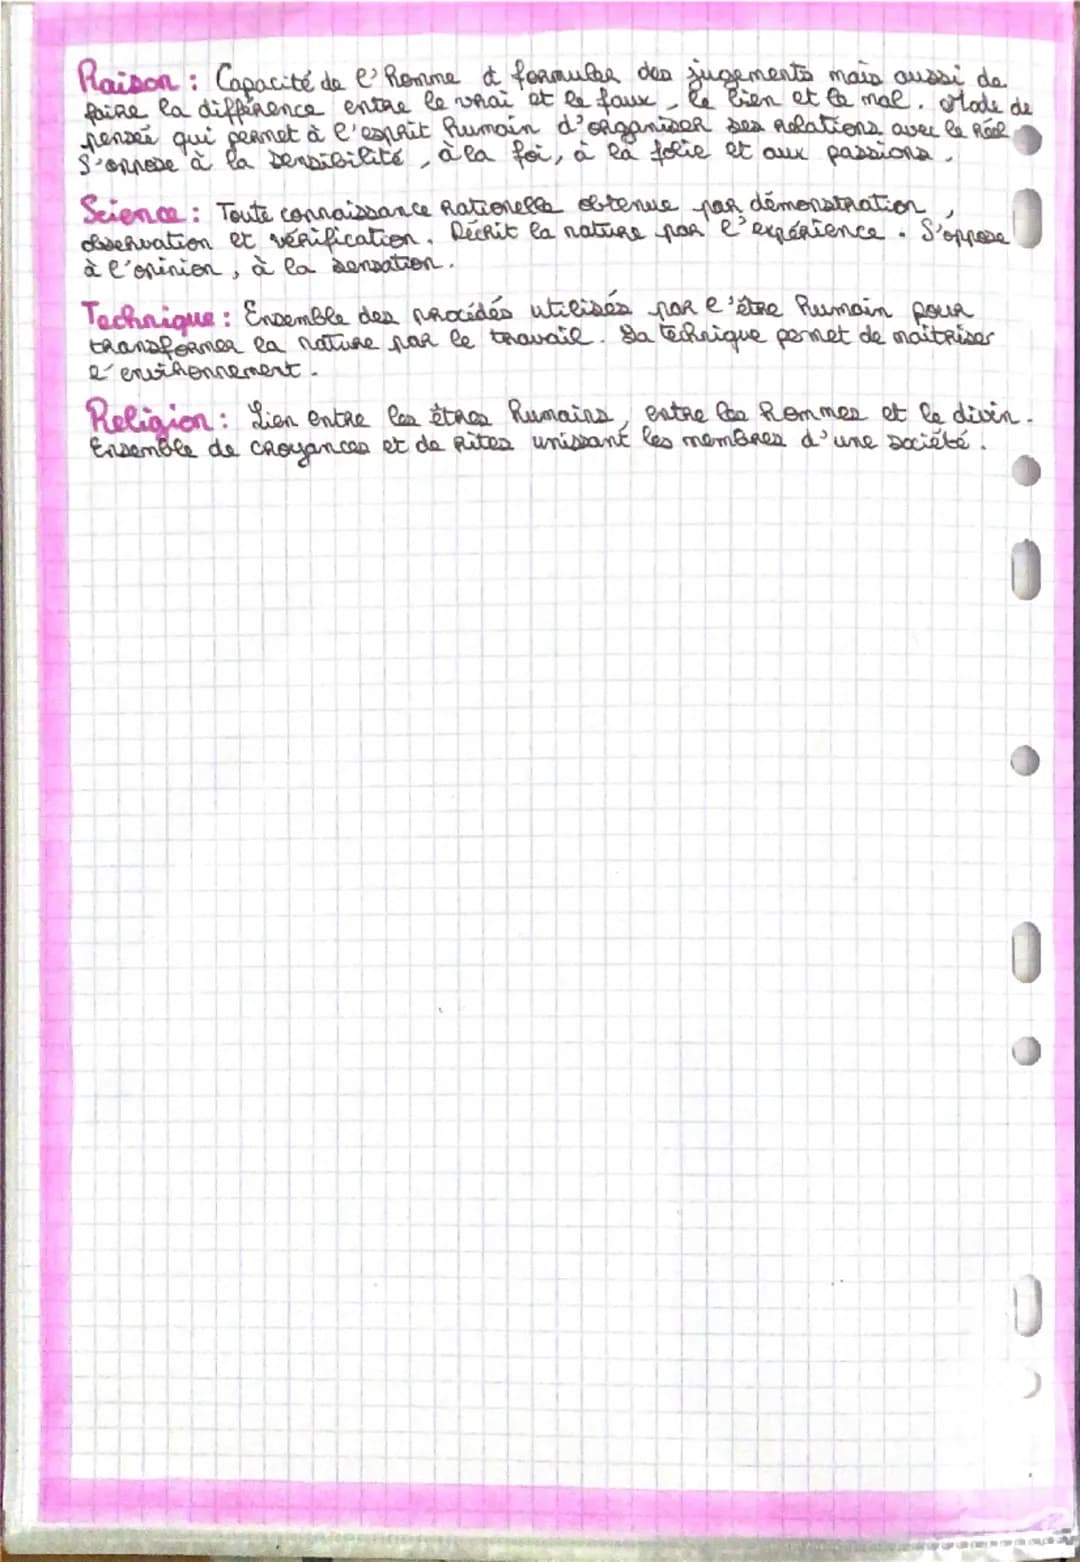 Raison : Capacité de l'Homme à formuler des jugements mais aussi de
faire la différence entre le vrai et le faux, le bien et le mal. Mode de
pensée qui permet à l'esprit humain d'organiser ses relations avec le réel
S'oppose à la sensibilité, à la foi, à la folie et aux passions.
Science : Toute connaissance rationelle obtenue par démonstration,
observation et vérification. Décrit la nature par l'expérience. S'oppose
à l'opinion, à la sensation.
Technique : Ensemble des procédés utilisés par l'être humain pour
transformer la nature par le travail. La technique permet de maîtriser
l'environnement.
Religion : Lien entre les êtres humains, entre les Hommes et le divin.
Ensemble de croyances et de rites unissant les membres d'une société.